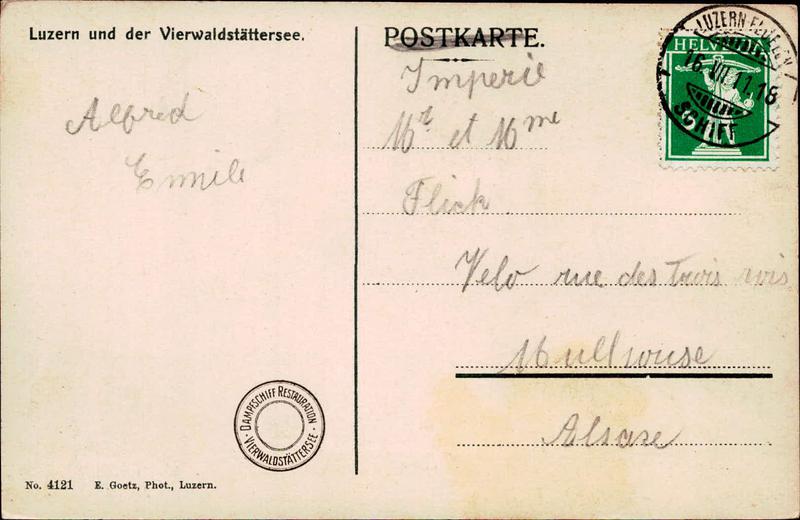 Luzern und der Vierwaldstättersee.
POSTKARTE.
HELVETIA
LUZERN-FLÜELEN
16.VII.11.18
SCHIFF
Imperie
Mr et Mme
Flick
Velo rue des trois rois
Mullhouse
Alsace
Alfred
Emile
DAMPFSCHIFF RESTAURATION
VIERWALDSTÄTTERSEE
No. 4121 E. Goetz, Phot., Luzern.